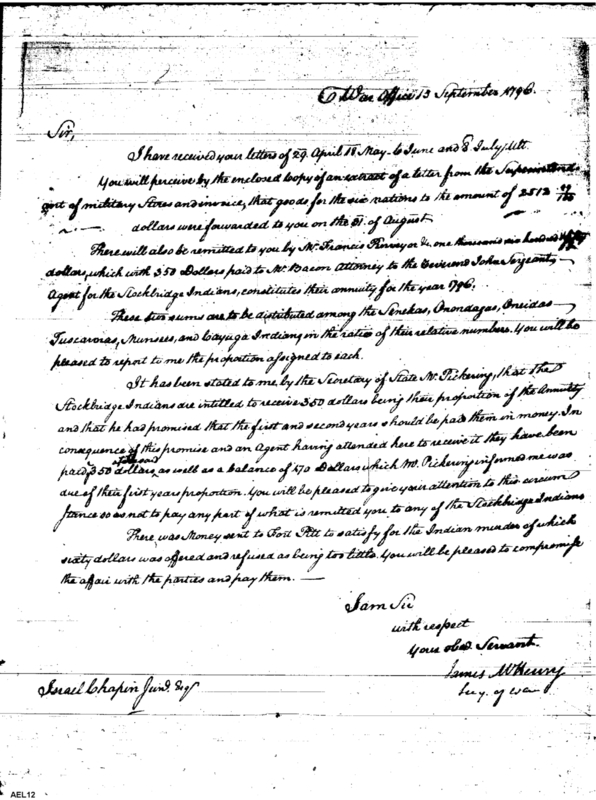 War Office 13 September 1796.
Sir,
I have received your letters of 29 April 18 May 6 June and 8 July Ult.
You will perceive by the enclosed Copy of an extract of a letter from the Superintend
ent of military Stores and invoice, that goods for the six nations to the amount of 2512
dollars were forwarded to you on the 31. of August
There will also be remitted to you by Mr. Francis one thousand six hundred
dollars, which with 350 Dollars paid to Mr. Bacon Attorney to the Reverend John Sergeant
Agent for the Stockbridge Indians, constitutes their annuity for the year 1796.
These two sums are to be distributed among the Senekas, Onondagas, Oneidas
Tuscaroras, Munsees, and Cayuga Indians, in the ratio of their relative numbers. You will be
pleased to report to me the proportion assigned to each.
It has been stated to me, by the Secretary of State Mr. Pickering, that the
Stockbridge Indians are intitled to receive 350 dollars being their proportion of the Annuity
and that he had promised that the first and second years should be paid them in money. In
consequence of this promise and an Agent having attended here to receive it they have been
paid 350 dollars, as well as a balance of 170 Dollars which Mr. Pickering informed me was
due of their first years proportion. You will be pleased to give your attention to this circum
stance so as not to pay any part of what is remitted you to any of the Stockbridge Indians
There was Money sent to Fort Pitt to satisfy for the Indian murder of which
sixty dollars was offered and refused as being too little. You will be pleased to compromise
the affair with the parties and pay them. —
I am Sir
with respect
Your obed. Servant.
James McHenry
Secy. of War
Israel Chapin Junr. Esqr
AEL12